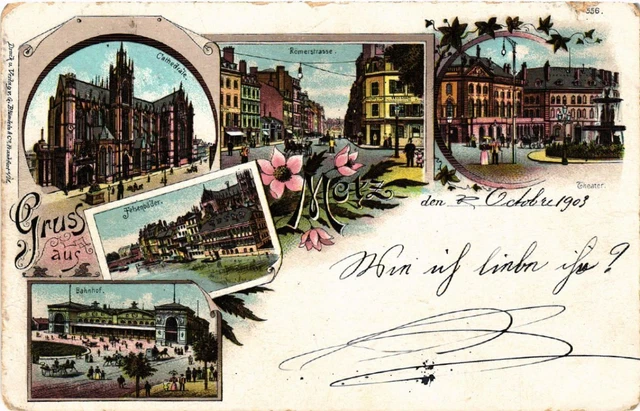 556.
Druck u. Verlag v. G. Blümlein & Co. Frankfurt a/M.
Cathedrale.
Römerstrasse.
Theater.
Gruss
aus
Metz
Bahnhof.
den 2 Octobre 1903
Wie ich liebe ihr ?